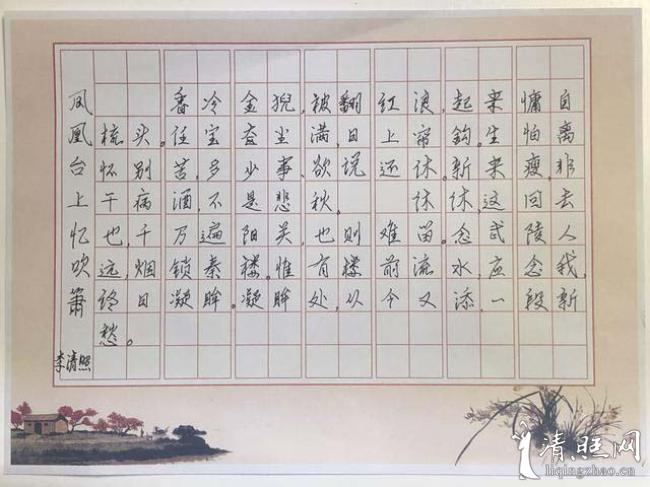 凤凰台上忆吹箫
李清照
香冷金猊,被翻红浪,起来慵自
梳头。任宝奁尘满,日上帘钩。生怕离
怀别苦,多少事、欲说还休。新来瘦,非
干病酒,不是悲秋。 休休,这回去
也,千万遍阳关,也则难留。念武陵人
远,烟锁秦楼。惟有楼前流水,应念我,
终日凝眸。凝眸处,从今又添,一段新
愁。
清旺网
liqingzhao.cn